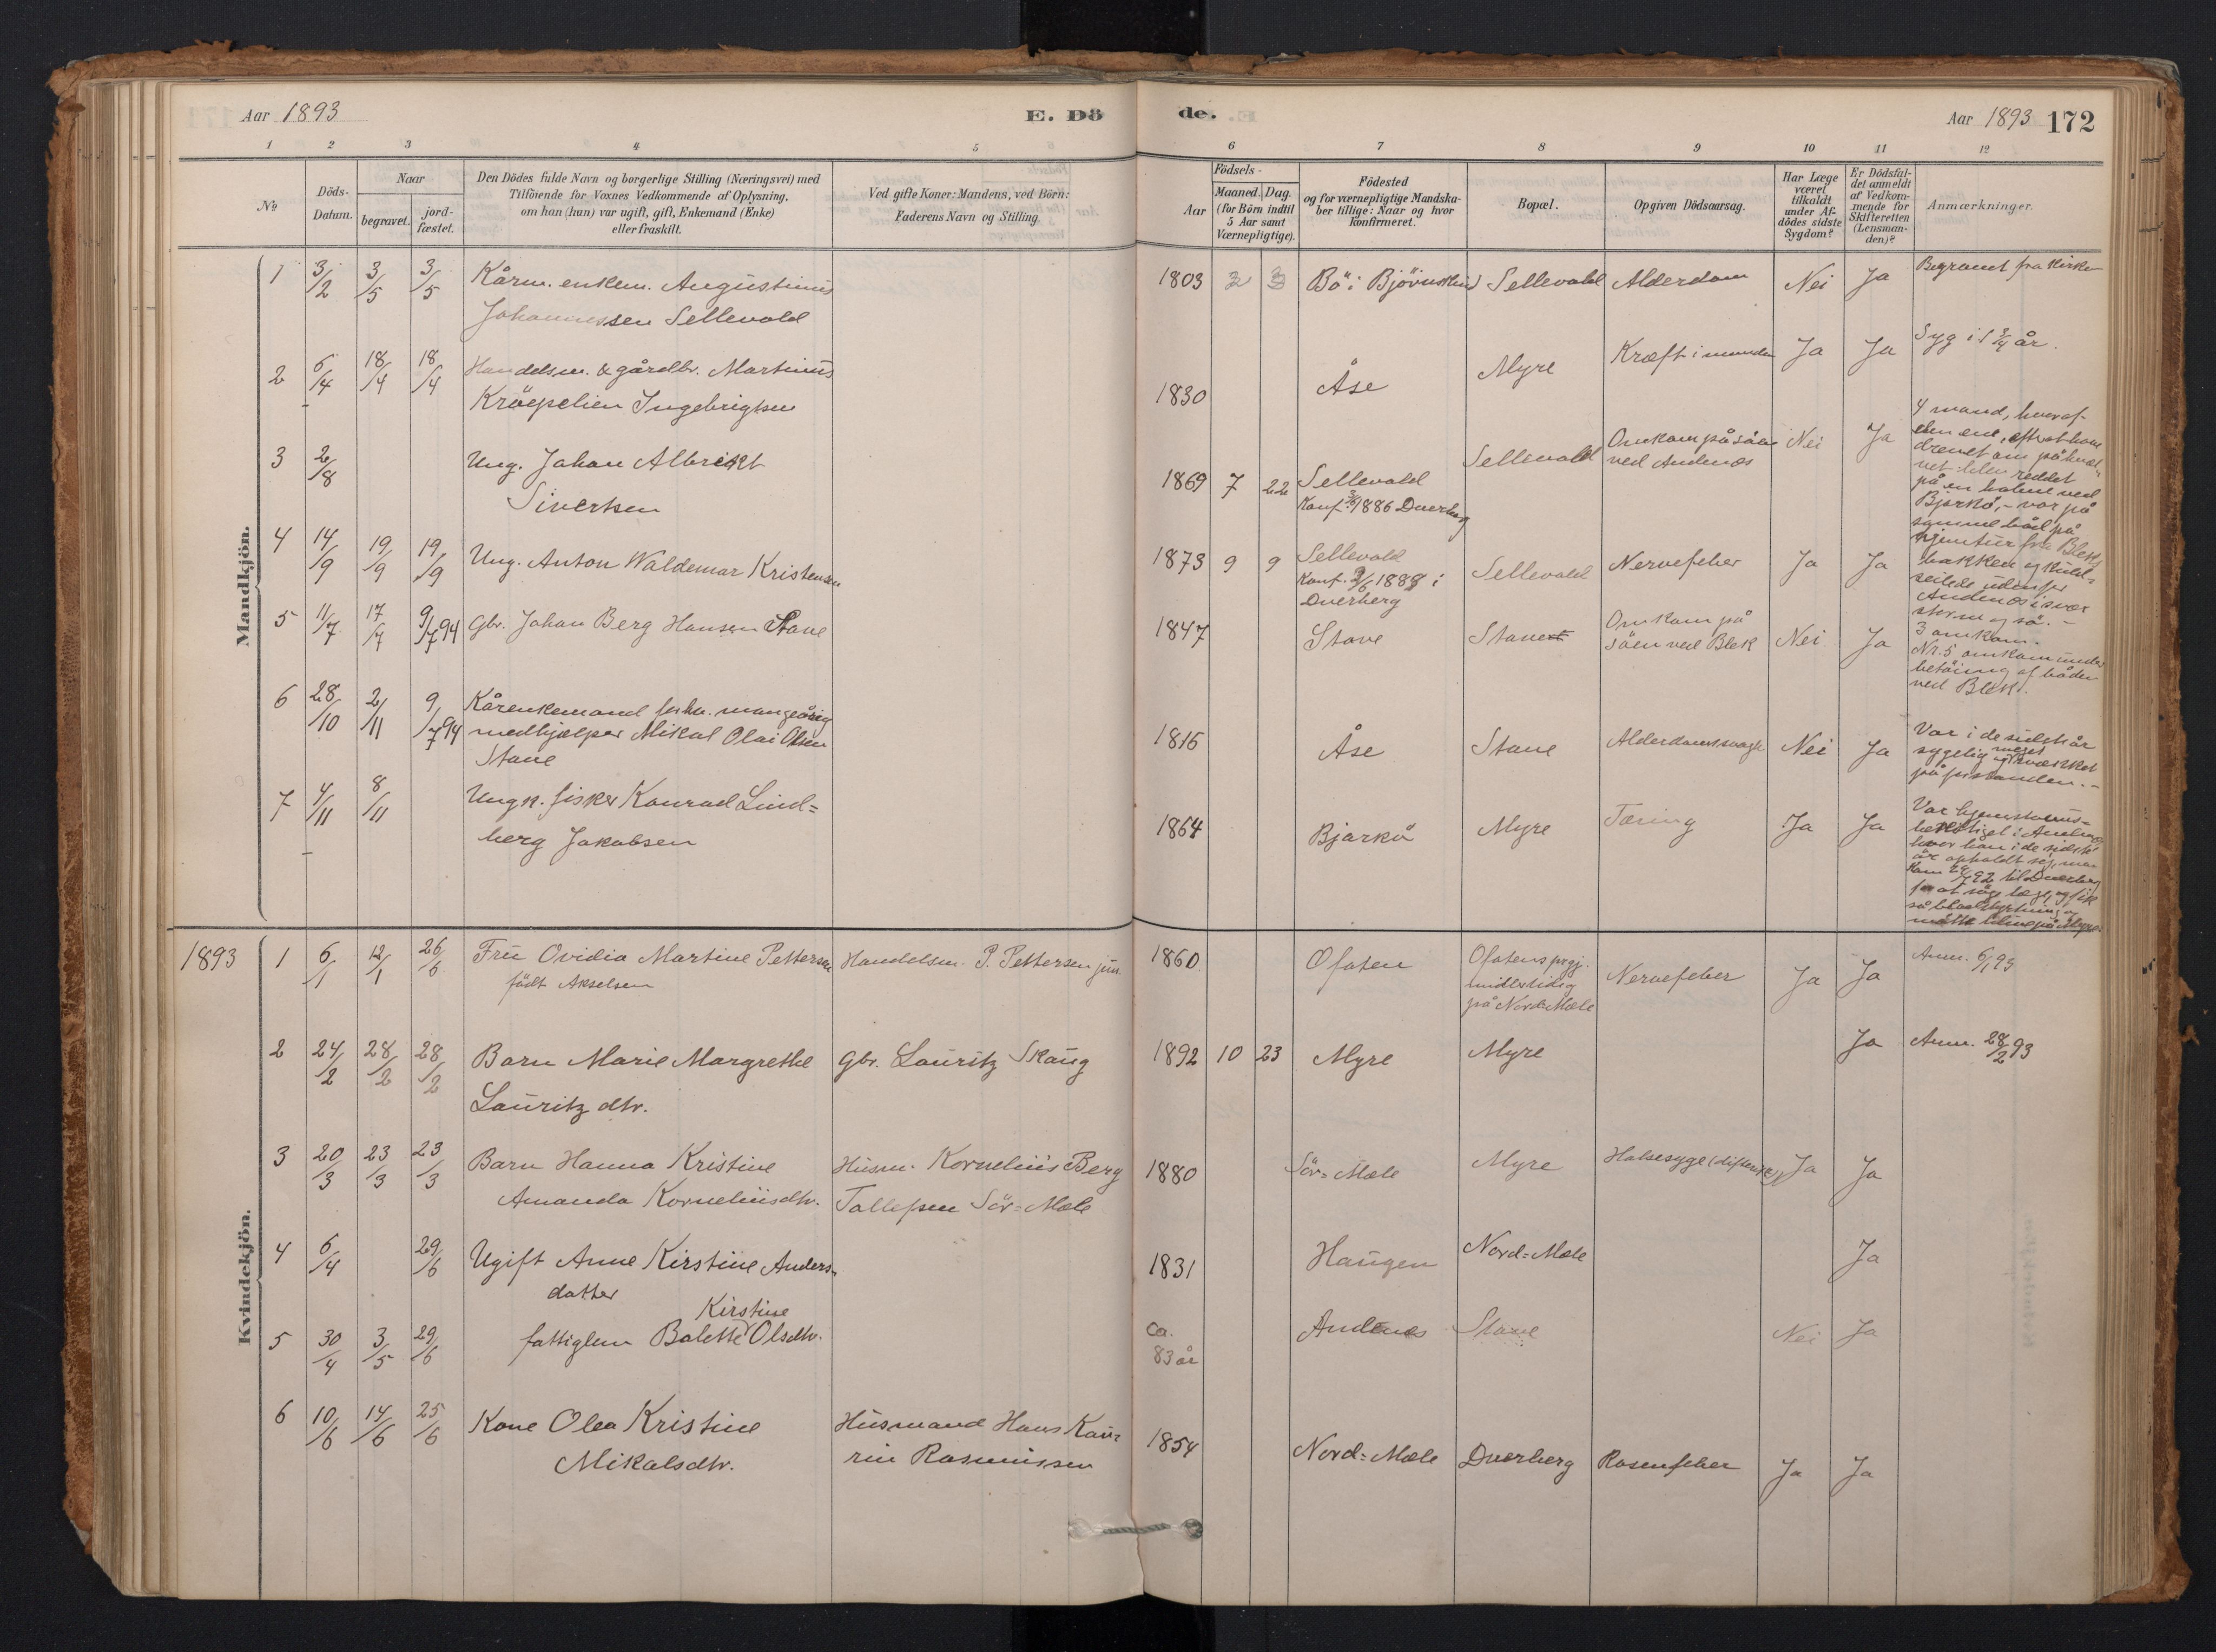 Aar 1893
E. Dö
de.
Aar 1893 172
1 2 3 4 5 6 7 8 9 10 11 12
№
Döds-
Datum.
Naar
begravet.
jord-
fæstet.
Den Dödes fulde Navn og borgerlige Stilling (Næringsvei) med
Tilföiende for Voxnes Vedkommende af Oplysning,
om han (hun) var ugift, gift, Enkemand (Enke)
eller fraskilt.
Ved gifte Koner: Mandens, ved Börn:
Faderens Navn og Stilling.
Födsels-
Aar
Maaned. Dag.
(for Börn indtil
5 Aar samt
Værnepligtige).
Födested
og for værnepligtige Mandska-
ber tillige: Naar og hvor
Konfirmeret.
Bopæl.
Opgiven Dödsaarsag.
Har Læge
været
tilkaldt
under Af-
dödes sidste
Sygdom?
Er Dödsfal-
det anmeldt
af Vedkom-
mende for
Skifteretten
(Lensman-
den)?
Anmærkninger.
Mandkjön.
1 3/2 3/5 3/5 Kårm. enkem. Augustinus
Johannessen Sellevold
1803 Bö i Sellevold Alderdom Nei Ja
2 6/4 18/4 18/4 Handelsm. & gårdbr. Martinus
Kröepelien Ingebrigtsen
1830 Åse Myre Kræft i munden Ja Ja Syg i 1 3/4 år.
3 2/8 Ung. Johan Albrikt
Sivertsen
1869 7 22 Sellevold
Konf. 1886 Dverberg
Sellevold Omkom på såen
ved Andenæs
Nei Ja
4 mand, hvoraf
den ene, efter at have
drevet om på hvæl-
vet blev reddet
på en holme ved
Bjarkö, - var på
samme båd på
hjemtur fra Bleks
bakken og kuld-
seilede udenfor
Andenæs i svær
storm og sö. -
3 omkom.
4 14/9 19/9 19/9 Ung. Anton Waldemar Kristensen
1873 9 9 Sellevold
Konf. 1888 i
Dverberg
Sellevold Nervefeber Ja Ja
5 11/7 17/7 9/7 94 Gbr. Johan Berg Hansen Stave
1847 Stave Stave Omkom på
såen ved Blek
Nei Ja
Nr. 5 omkom under
betöing af båden
ved Blek.
6 28/10 2/11 9/7 94 Kårenkemand forhv. mangeårig
medhjælper Mikal Olai Olsen
Stave
1815 Åse Stave Alderdomssvagh. Nei Ja
Var i de sidste år
sygelig og meget svækket
på forstanden. -
7 4/11 8/11 Ungk. fisker Konrad Lind-
berg Jakobsen
1864 Bjarkö Myre Tæring Ja Ja
Var hjemstavns-
hvor han i de sidste
år opholdt sig, men
kom 92 til Dverberg
for at söge læge, og fik
så blodstyrtning og
måtte blive på Myre.
Kvindekjön.
1893 1 6/1 12/1 26/6 Fru Ovidia Martine Pettersen
födt Akselsen
Handelsm. P. Pettersen jun.
1860 Ofoten Ofotens prgj.
midlertidig
på Nord-Mæle
Nervefeber Ja Ja Anm. 6/1 93
2 24/2 28/2 28/2 Barn Marie Margrethe
Lauritz dtr.
Gbr. Lauritz Skaug
1892 10 23 Myre Myre Ja Anm. 28/2 93
3 20/3 23/3 23/3 Barn Hanna Kristine
Amanda Korneliusdtr.
Husm. Kornelius Berg
Tollefsen Sör-Mæle
1880 Sör-Mæle Myre Halsesyge (difterit) Ja Ja
4 6/4 29/6 Ugift Anne Kirstine Anders-
datter
1831 Haugen Nord-Mæle Ja
5 30/4 3/5 29/6 fattiglem Bolette Kirstine Olsdtr.
ca.
83 år
Andenæs Stave Nei Ja
6 10/6 14/6 25/6 Kone Olea Kristine
Mikalsdtr.
Husmand Hans Kau-
rin Rasmussen
1854 Nord-Mæle Dverberg Rosenfeber Ja Ja